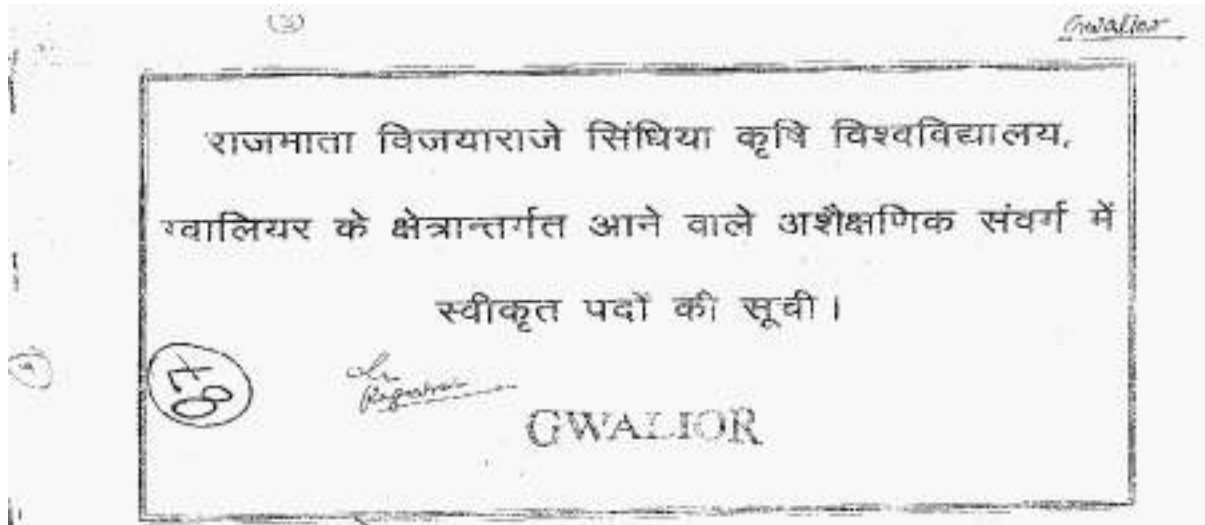 Gwalior
राजमाता विजयाराजे सिंधिया कृषि विश्वविद्यालय,
ग्वालियर के क्षेत्रान्तर्गत आने वाले अशैक्षणिक संवर्ग में
स्वीकृत पदों की सूची।
Registrar
GWALIOR